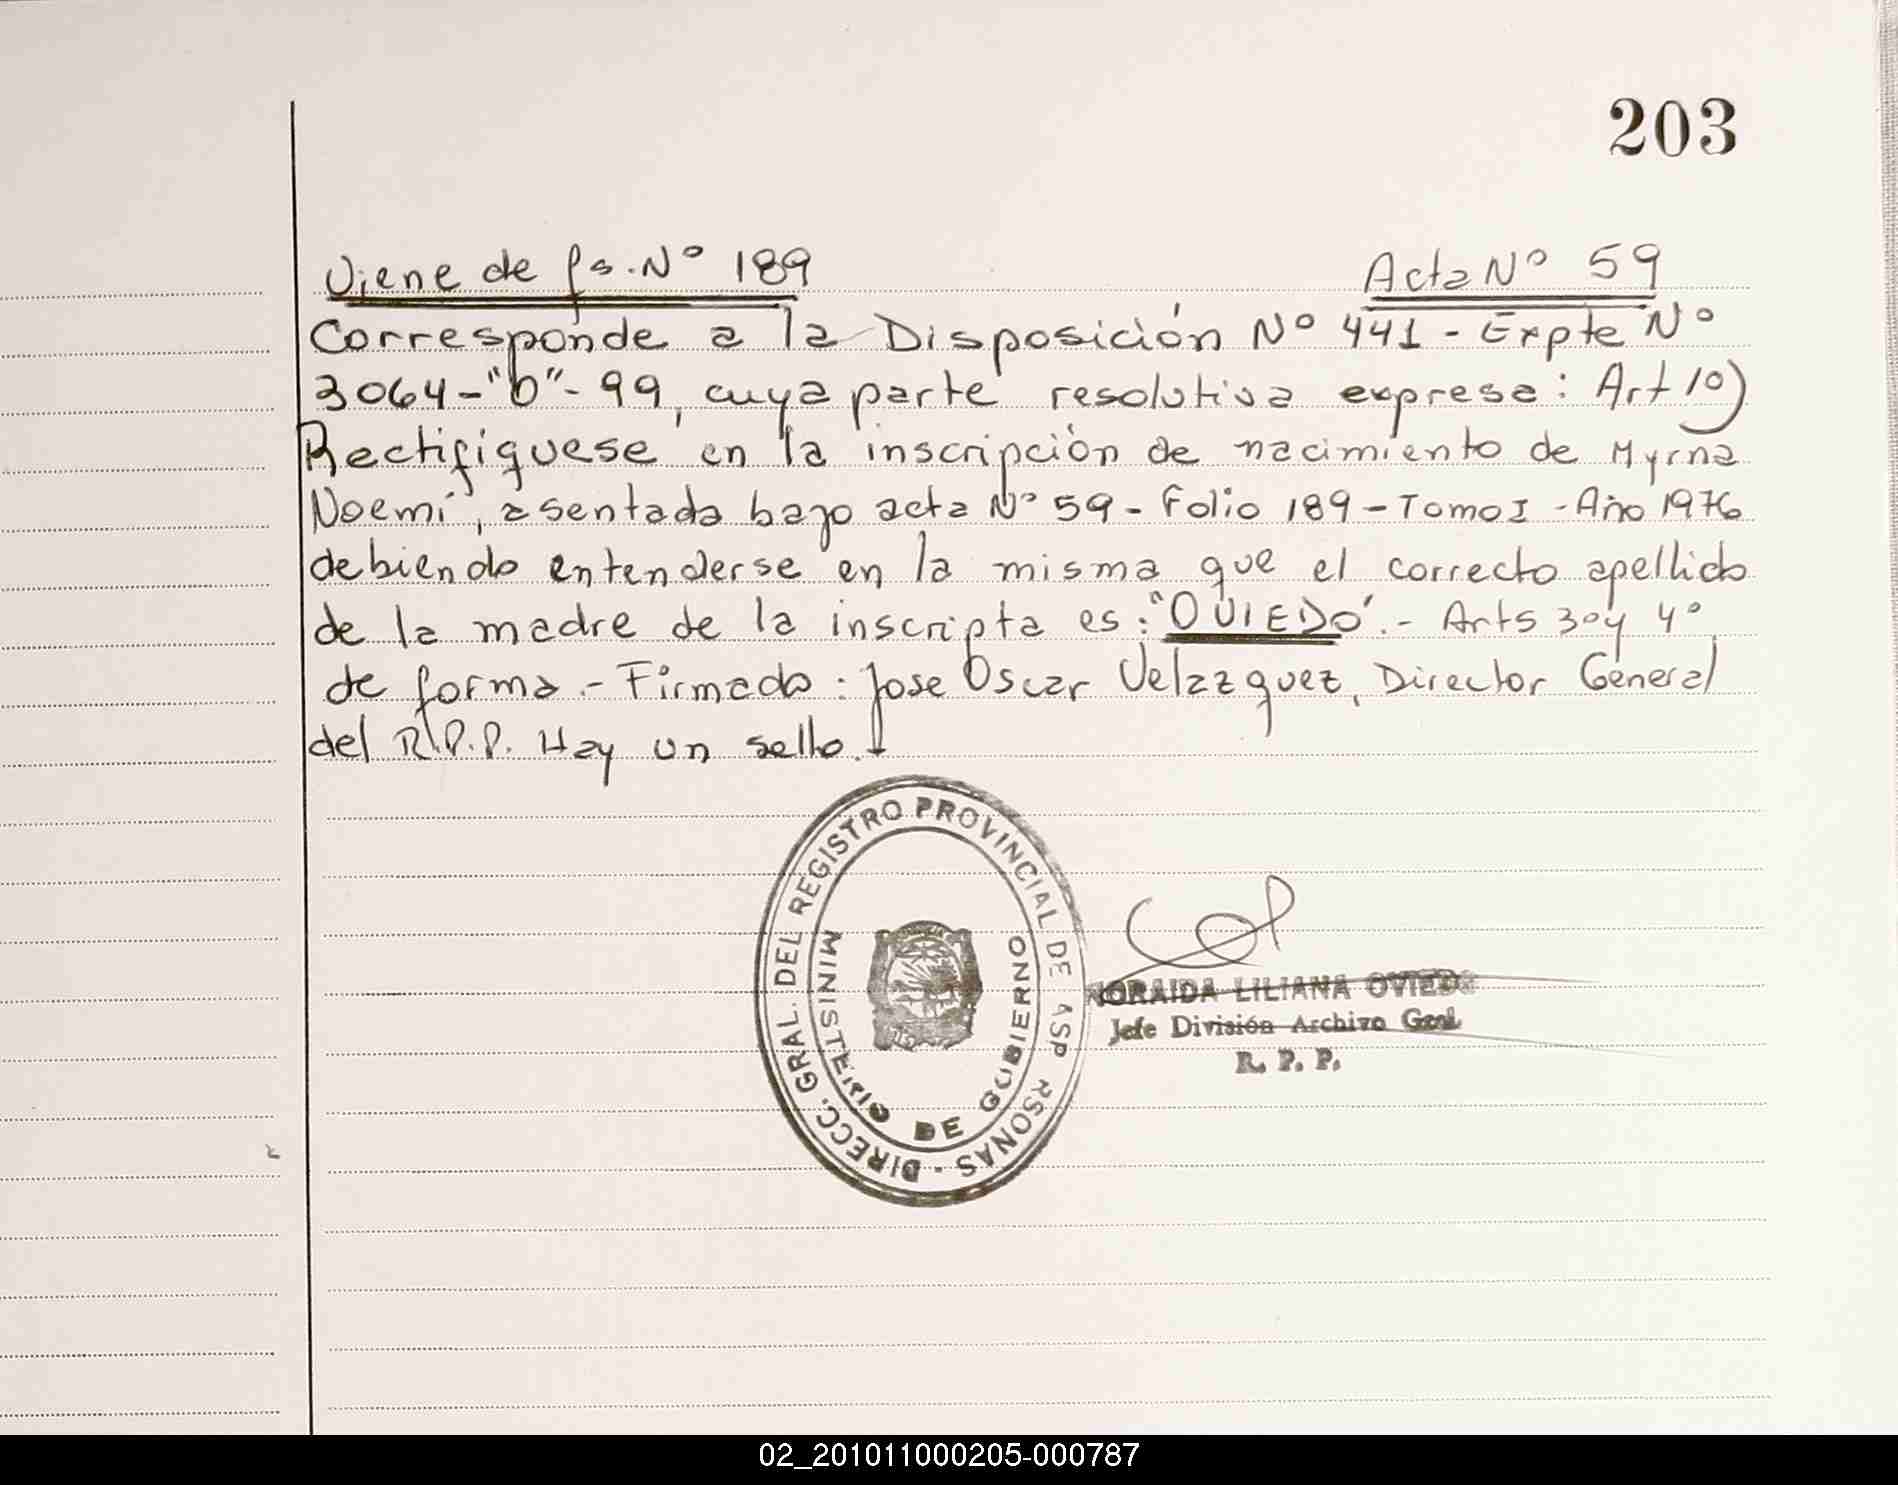 203
Viene de fs. Nº 189
Acta Nº 59
Corresponde a la Disposición Nº 441 - Expte Nº
3064-"O"-99, cuya parte resolutiva expresa: Art 1º)
Rectifiquese en la inscripción de nacimiento de Myrna
Noemí, asentada bajo acta Nº 59 - Folio 189 - Tomo I - Año 1976
debiendo entenderse en la misma que el correcto apellido
de la madre de la inscripta es: "OVIEDO".- Arts 3º y 4º
de forma.- Firmado: Jose Oscar Velazquez, Director General
del R.P.P. Hay un sello.
DIRECC. GRAL. DEL REGISTRO PROVINCIAL DE LAS PERSONAS -
MINISTERIO DE GOBIERNO
NORAIDA LILIANA OVIEDO
Jefe División Archivo Gral
R. P. P.
02_201011000205-000787